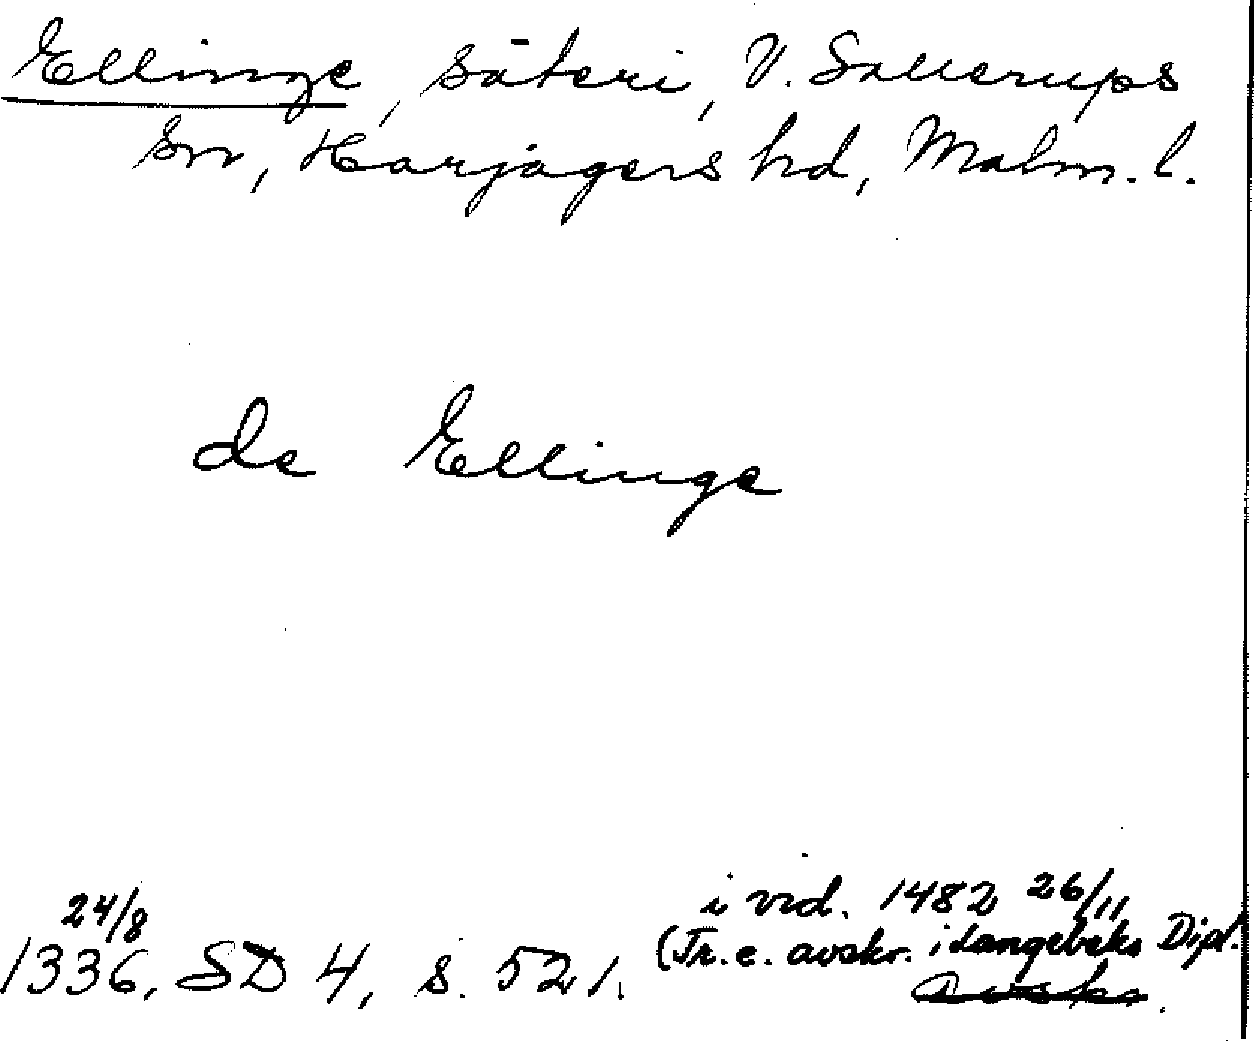 Ellinge, säteri, V. Sallerups
sn, Harjagers hd, Malm. l.
de Ellinge
24/8
i vid. 1482 26/11
1336, SD 4, s. 521. (Tr. e. avskr. i Langebeks Dipl.
avskr.